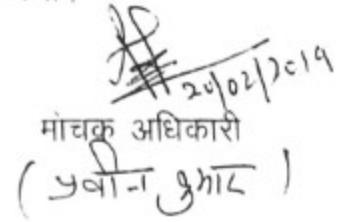 20/02/2019
मांचक अधिकारी
( प्रवीन कुमार )